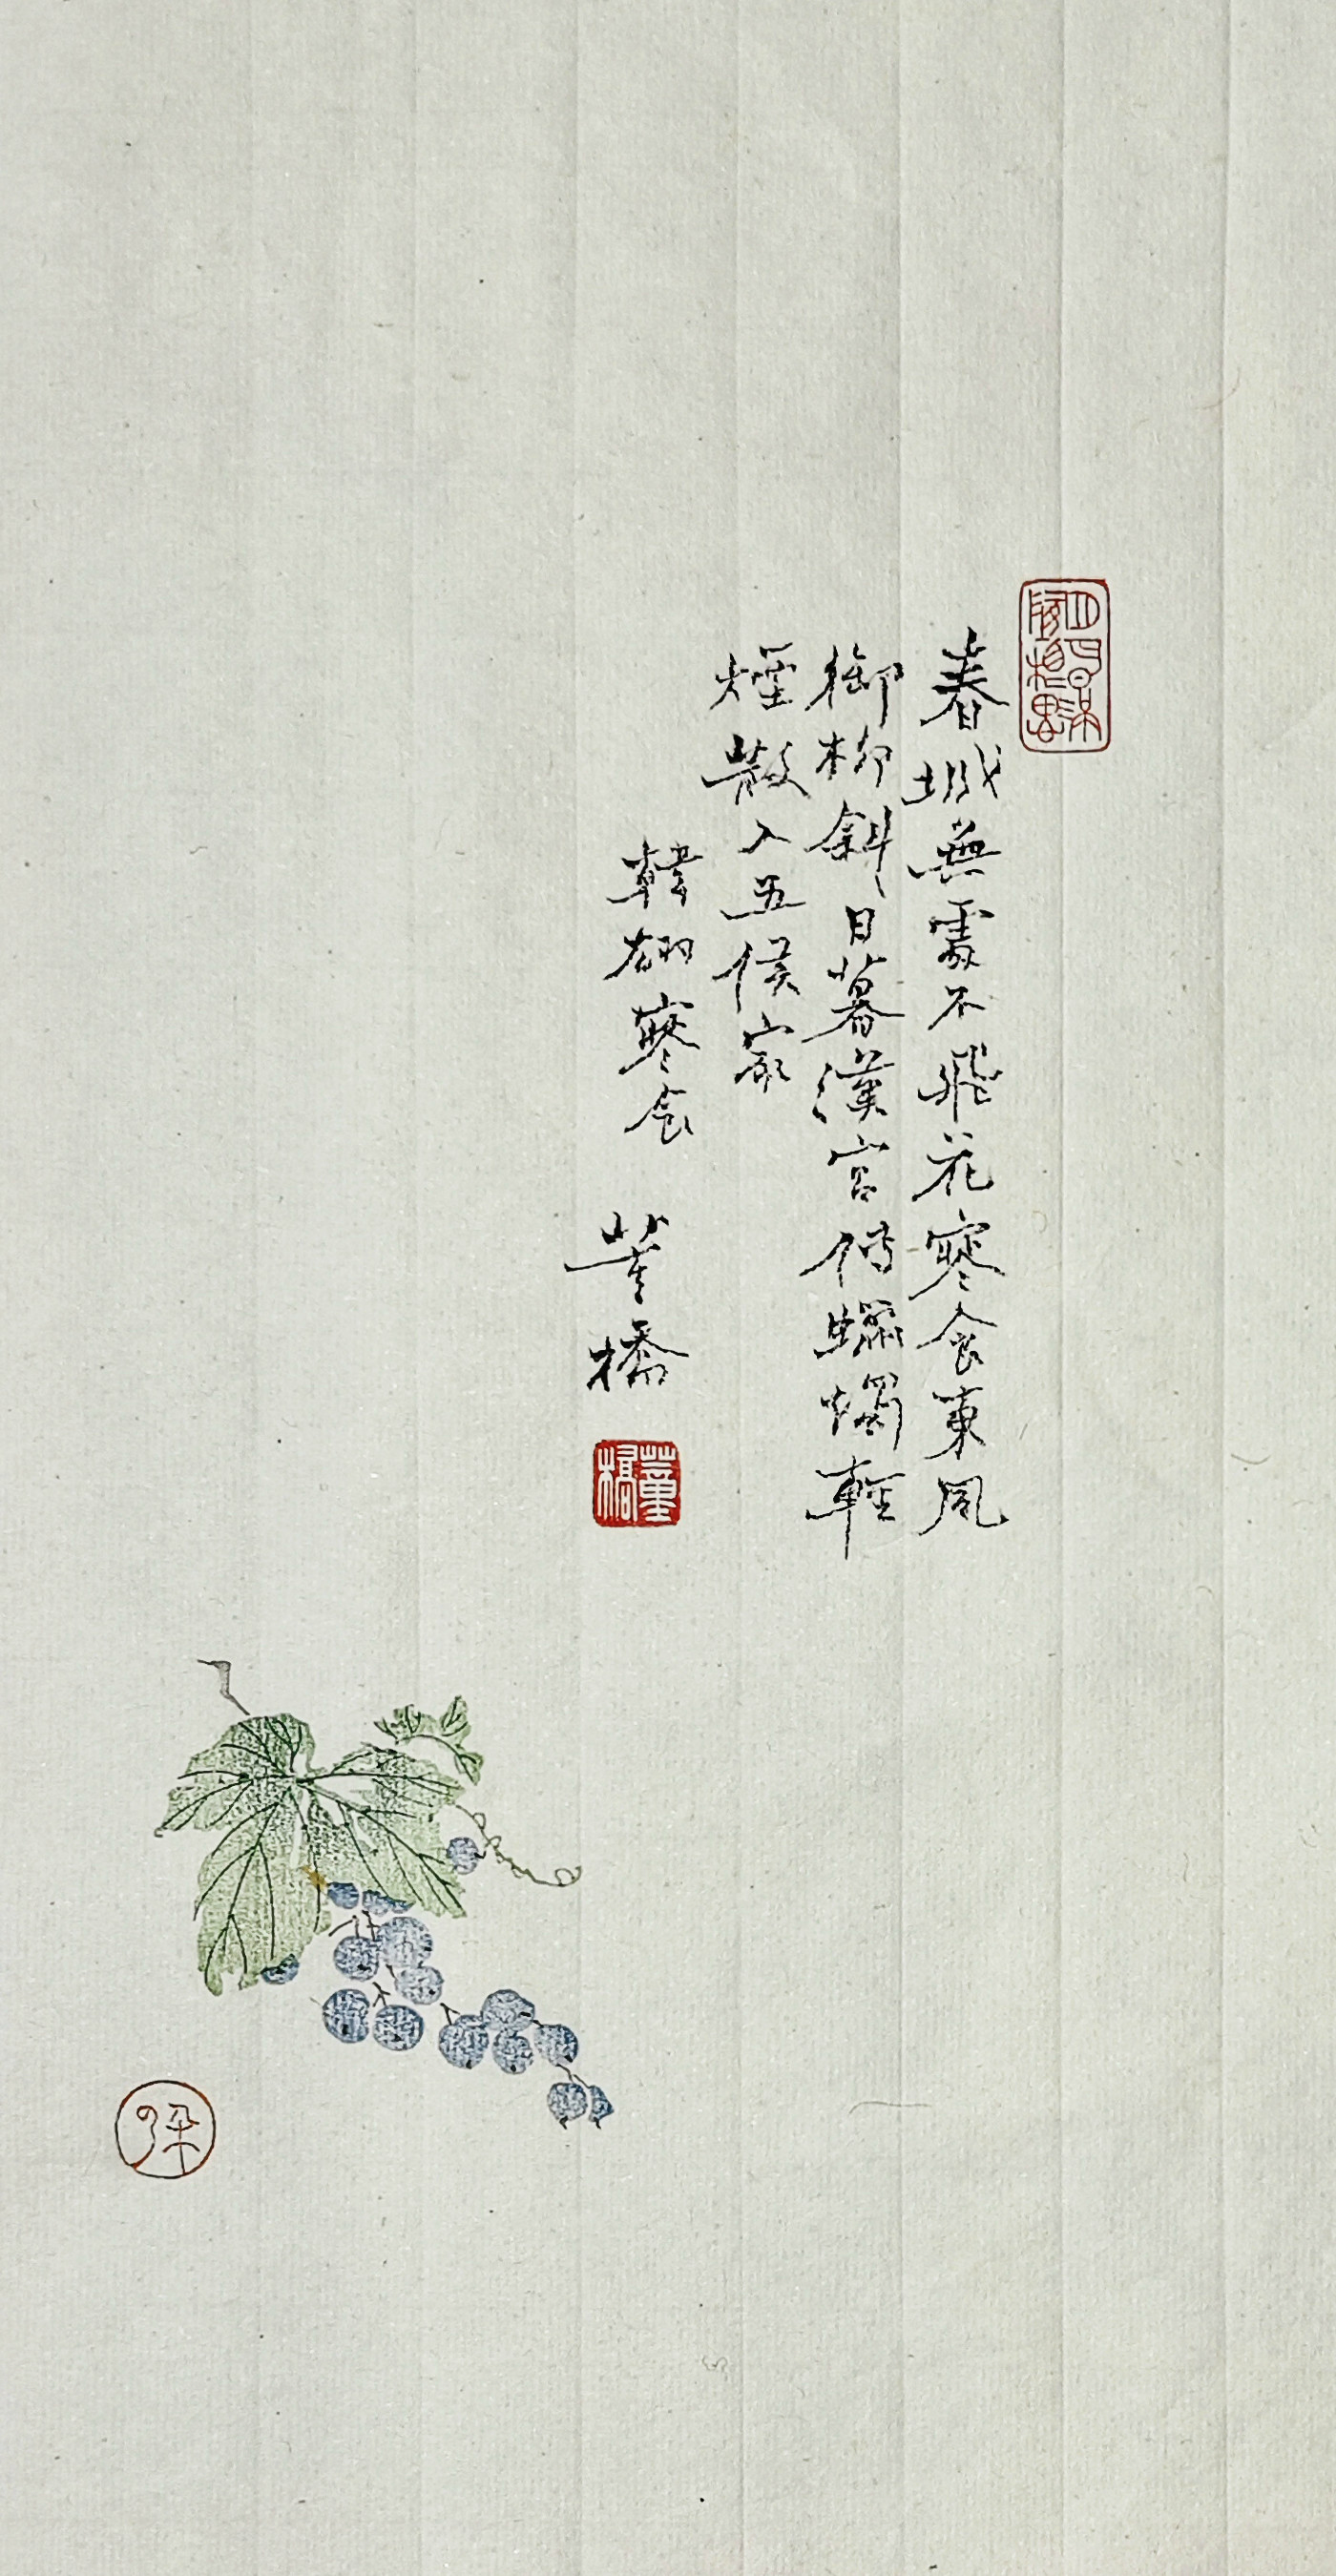 春城無處不飛花寒食東風
御柳斜日暮漢宮傳蠟燭輕
煙散入五侯家
韓翃寒食 董橋
董橋